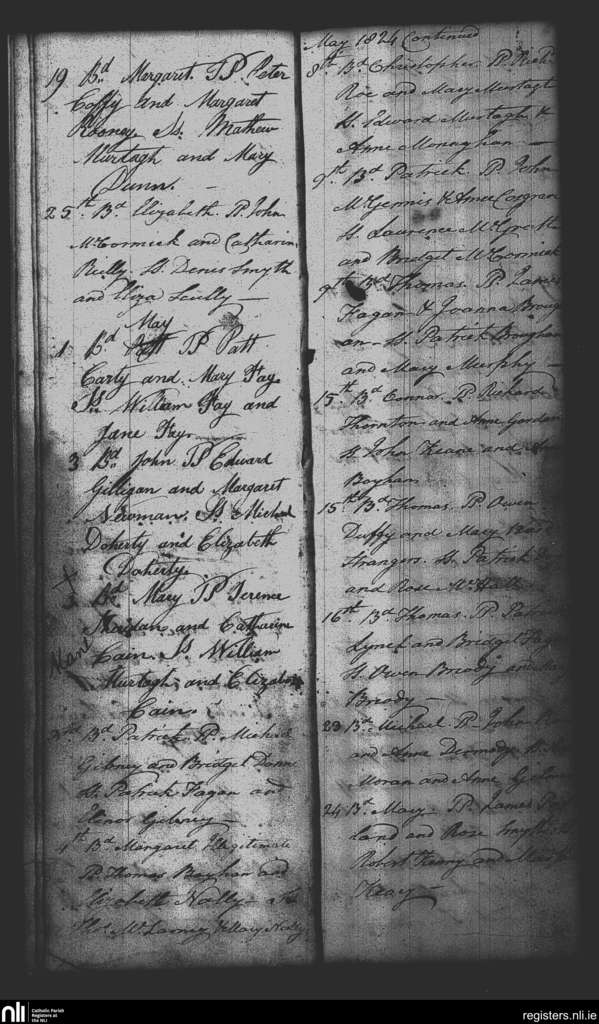 19 Bd Margaret. PP. Peter
Coffy and Margaret
Rooney Ss. Mathew
Murtagh and Mary
Dunn. —
25th Bd. Elizabeth. P. John
McCormick and Catharin
Reilly. S. Denis Smyth
and Eliza Scully —
May
1 Bd Patt PP Patt
Carty and Mary Fay
Ss. William Fay and
Jane Fay.
3 Bd. John PP Edward
Gilligan and Margaret
Newman. Ss Michael
Doherty and Elizabeth
Doherty.
X
3 Bd Mary PP Terence
and Catharine
Cain Ss. William
Murtagh and Elizabeth
Cain.
3rd Bd. Patrick P. Michael
Gibney and Bridget Dunn
S. Patrick Fagan and
Elenor Gibney —
4th Bd Margaret Illegitimate
P. Thomas Boyhan and
Elizabeth Nally — S.
Thos. & Mary Nally
May 1824 Continued
8th Bd Christopher. P. Rich
Roe and Mary Murtagh
S. Edward Murtagh &
Anne Monaghan —
9th Bd Patrick P. John
McGennis & Anne Cosgran
S. Laurence
and Bridget McCormick
9th Bd. Thomas. P. James
Fagan & Joanna Broug
an — S. Patrick Brogham
and Mary Murphy —
15th Bd Connor. P. Richard
Thornton and Anne
S. John Keane and
Boyhan
15th Bd Thomas. P. Owen
Duffy and Mary
Strangers. S. Patrick
and Rose
16th Bd. Thomas. P.
Lynch and Bridget
S. Owen Bready and
Bready —
23 Bd. Michael. P. John
and Anne
Moran and Anne
24 Bd. Mary. PP. James
land and Rose Smyth
Robert Keany and
Keay —
nli
Catholic Parish
Registers at
the NLI
registers.nli.ie